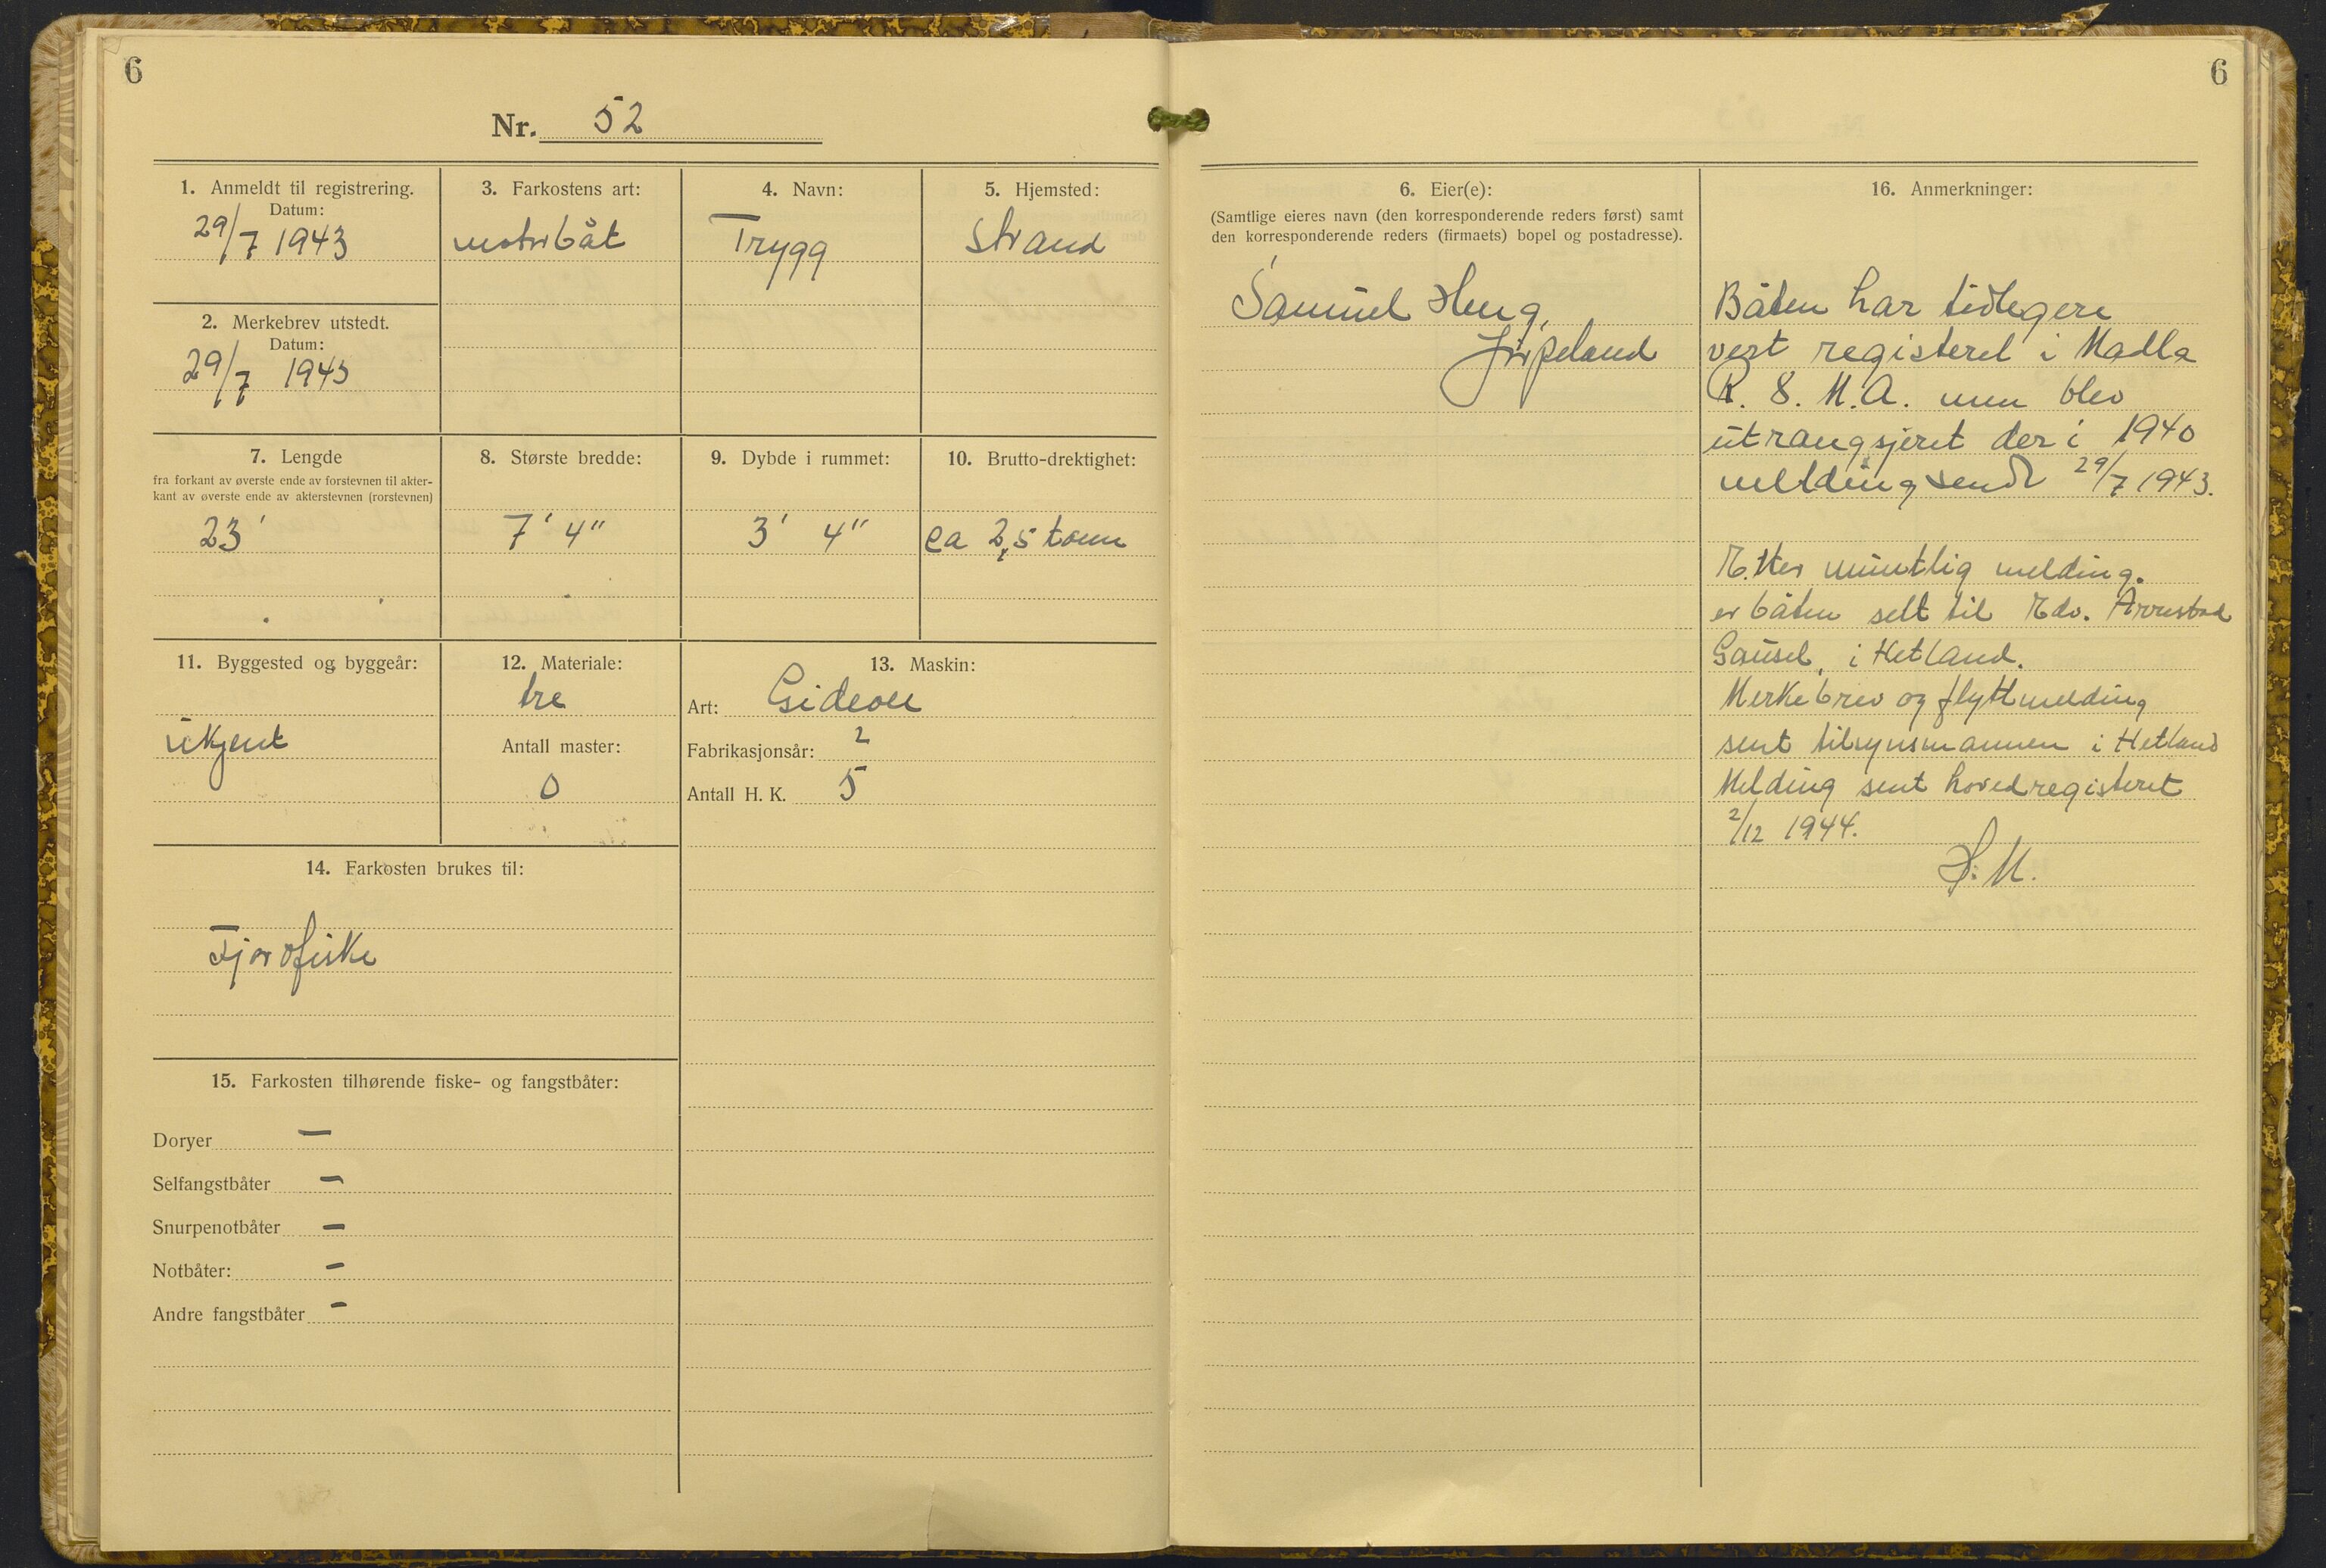 6
Nr. 52
1. Anmeldt til registrering.
Datum:
29/7 1943
2. Merkebrev utstedt.
Datum:
29/7 1943
3. Farkostens art:
motorbåt
4. Navn:
Trygg
5. Hjemsted:
Strand
7. Lengde
fra forkant av øverste ende av forstevnen til akter-
kant av øverste ende av akterstevnen (rorstevnen)
23'
8. Største bredde:
7' 4"
9. Dybde i rummet:
3' 4"
10. Brutto-drektighet:
ca 2,5 tonn
11. Byggested og byggeår:
ukjent
12. Materiale:
tre
Antall master:
0
13. Maskin:
Art: Gideon
Fabrikasjonsår:
Antall H. K. 5
14. Farkosten brukes til:
Fjordfiske
15. Farkosten tilhørende fiske- og fangstbåter:
Doryer —
Selfangstbåter —
Snurpenotbåter —
Notbåter: —
Andre fangstbåter —
6
6. Eier(e):
(Samtlige eieres navn (den korresponderende reders først) samt
den korresponderende reders (firmaets) bopel og postadresse).
Samuel Heng,
Jørpeland
16. Anmerkninger:
Båten har tidlegere
vert registeret i Madla
R. 8. M.A. men blev
utrangsjeret der i 1940
melding sendt 29/7 1943.
Etter muntlig melding.
er båten selt til Edv. Arrestad
Gausel, i Hetland.
Merkebrev og flyttmelding
sent tilsynsmannen i Hetland
Melding sent hovedregisteret
2/12 1944.
S. M.